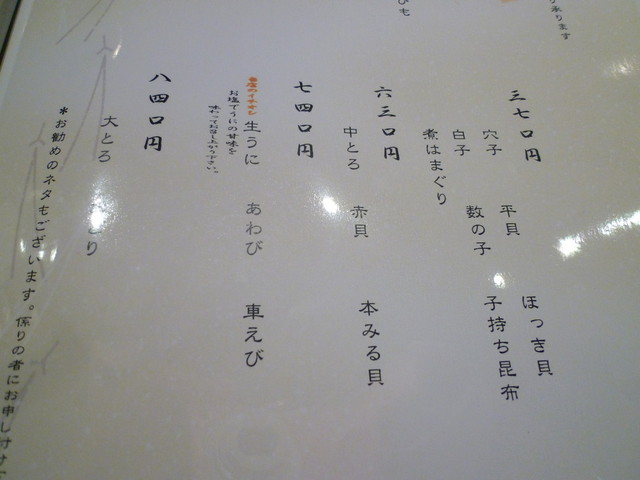 承ります
びも
三七〇円
穴子 平貝 ほっき貝
白子 数の子 子持ち昆布
煮はまぐり
六三〇円
中とろ 赤貝 本みる貝
七四〇円
当店のイチオシ
生うに あわび 車えび
お塩でうにの甘味を
味わってお召し上がり下さい。
八四〇円
大とろ
*お勧めのネタもございます。係りの者にお申し付け